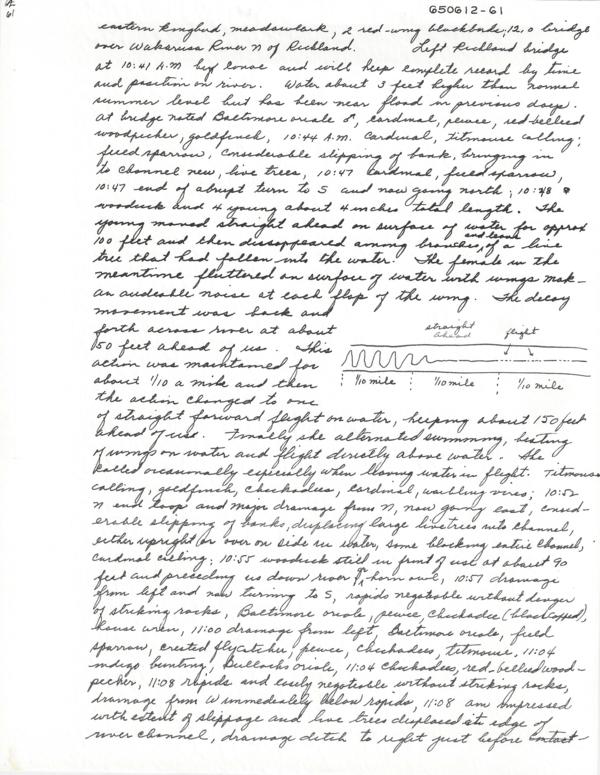 61
650612-61
eastern kingbird, meadowlark, 2 red-wing blackbirds; 12.0 bridge
over Wakarusa River N of Richland. Left Richland bridge
at 10:41 A.M by canoe and will keep complete record by time
and position on river. Water about 3 feet higher than normal
summer level but has been near flood in previous days.
At bridge noted Baltimore oriole ♂, cardinal, pewee, red-bellied
woodpecker, goldfinch, 10:44 A.M. Cardinal, titmouse calling;
field sparrow, considerable slipping of bank, bringing in
to channel new, live trees, 10:47 cardinal, field sparrow,
10:47 end of abrupt turn to S and now going north; 10:48
woodduck and 4 young about 4 inches total length. The
young moved straight ahead on surface of water for approx
100 feet and then dissappeared among branches, and leaves of a live
tree that had fallen into the water. The female in the
meantime fluttered on surface of water with wings mak-
an audeable noise at each flap of the wing. The decoy
movement was back and
forth across river at about
150 feet ahead of us. This
action was maintained for
about 1/10 a mile and then
the action changed to one
straight ahead flight
1/10 mile 1/10 mile 1/10 mile
of straight forward flight on water, keeping about 150 feet
ahead of us. Finally she alternated swimming, beating
of wings on water and flight directly above water. She
called occasionally especially when leaving water in flight. Titmouse
calling, goldfinch, chickadees, cardinal, warbling vireo; 10:52
N end loop and major drainage from N, now going east, consid-
erable slipping of banks, displacing large live trees into channel,
either upright or over on side in water, some blocking entire channel,
cardinal calling; 10:55 woodduck still in front of us at about 90
feet and preceding us down river, horn owl, 10:57 drainage
from left and now turning to S, rapids negotiable without danger
of striking rocks, Baltimore oriole, pewee, chickadee (blackcapped),
house wren, 11:00 drainage from left, Baltimore oriole, field
sparrow, crested flycatcher, pewee, chickadees, titmouse, 11:04
indigo bunting, Bullocks oriole, 11:04 chickadees, red-bellied wood-
pecker, 11:08 rapids and easily negotiable without striking rocks,
drainage from W immediately below rapids, 11:08 am impressed
with extent of slippage and live trees displaced at edge of
river channel, drainage ditch to right just before contact-